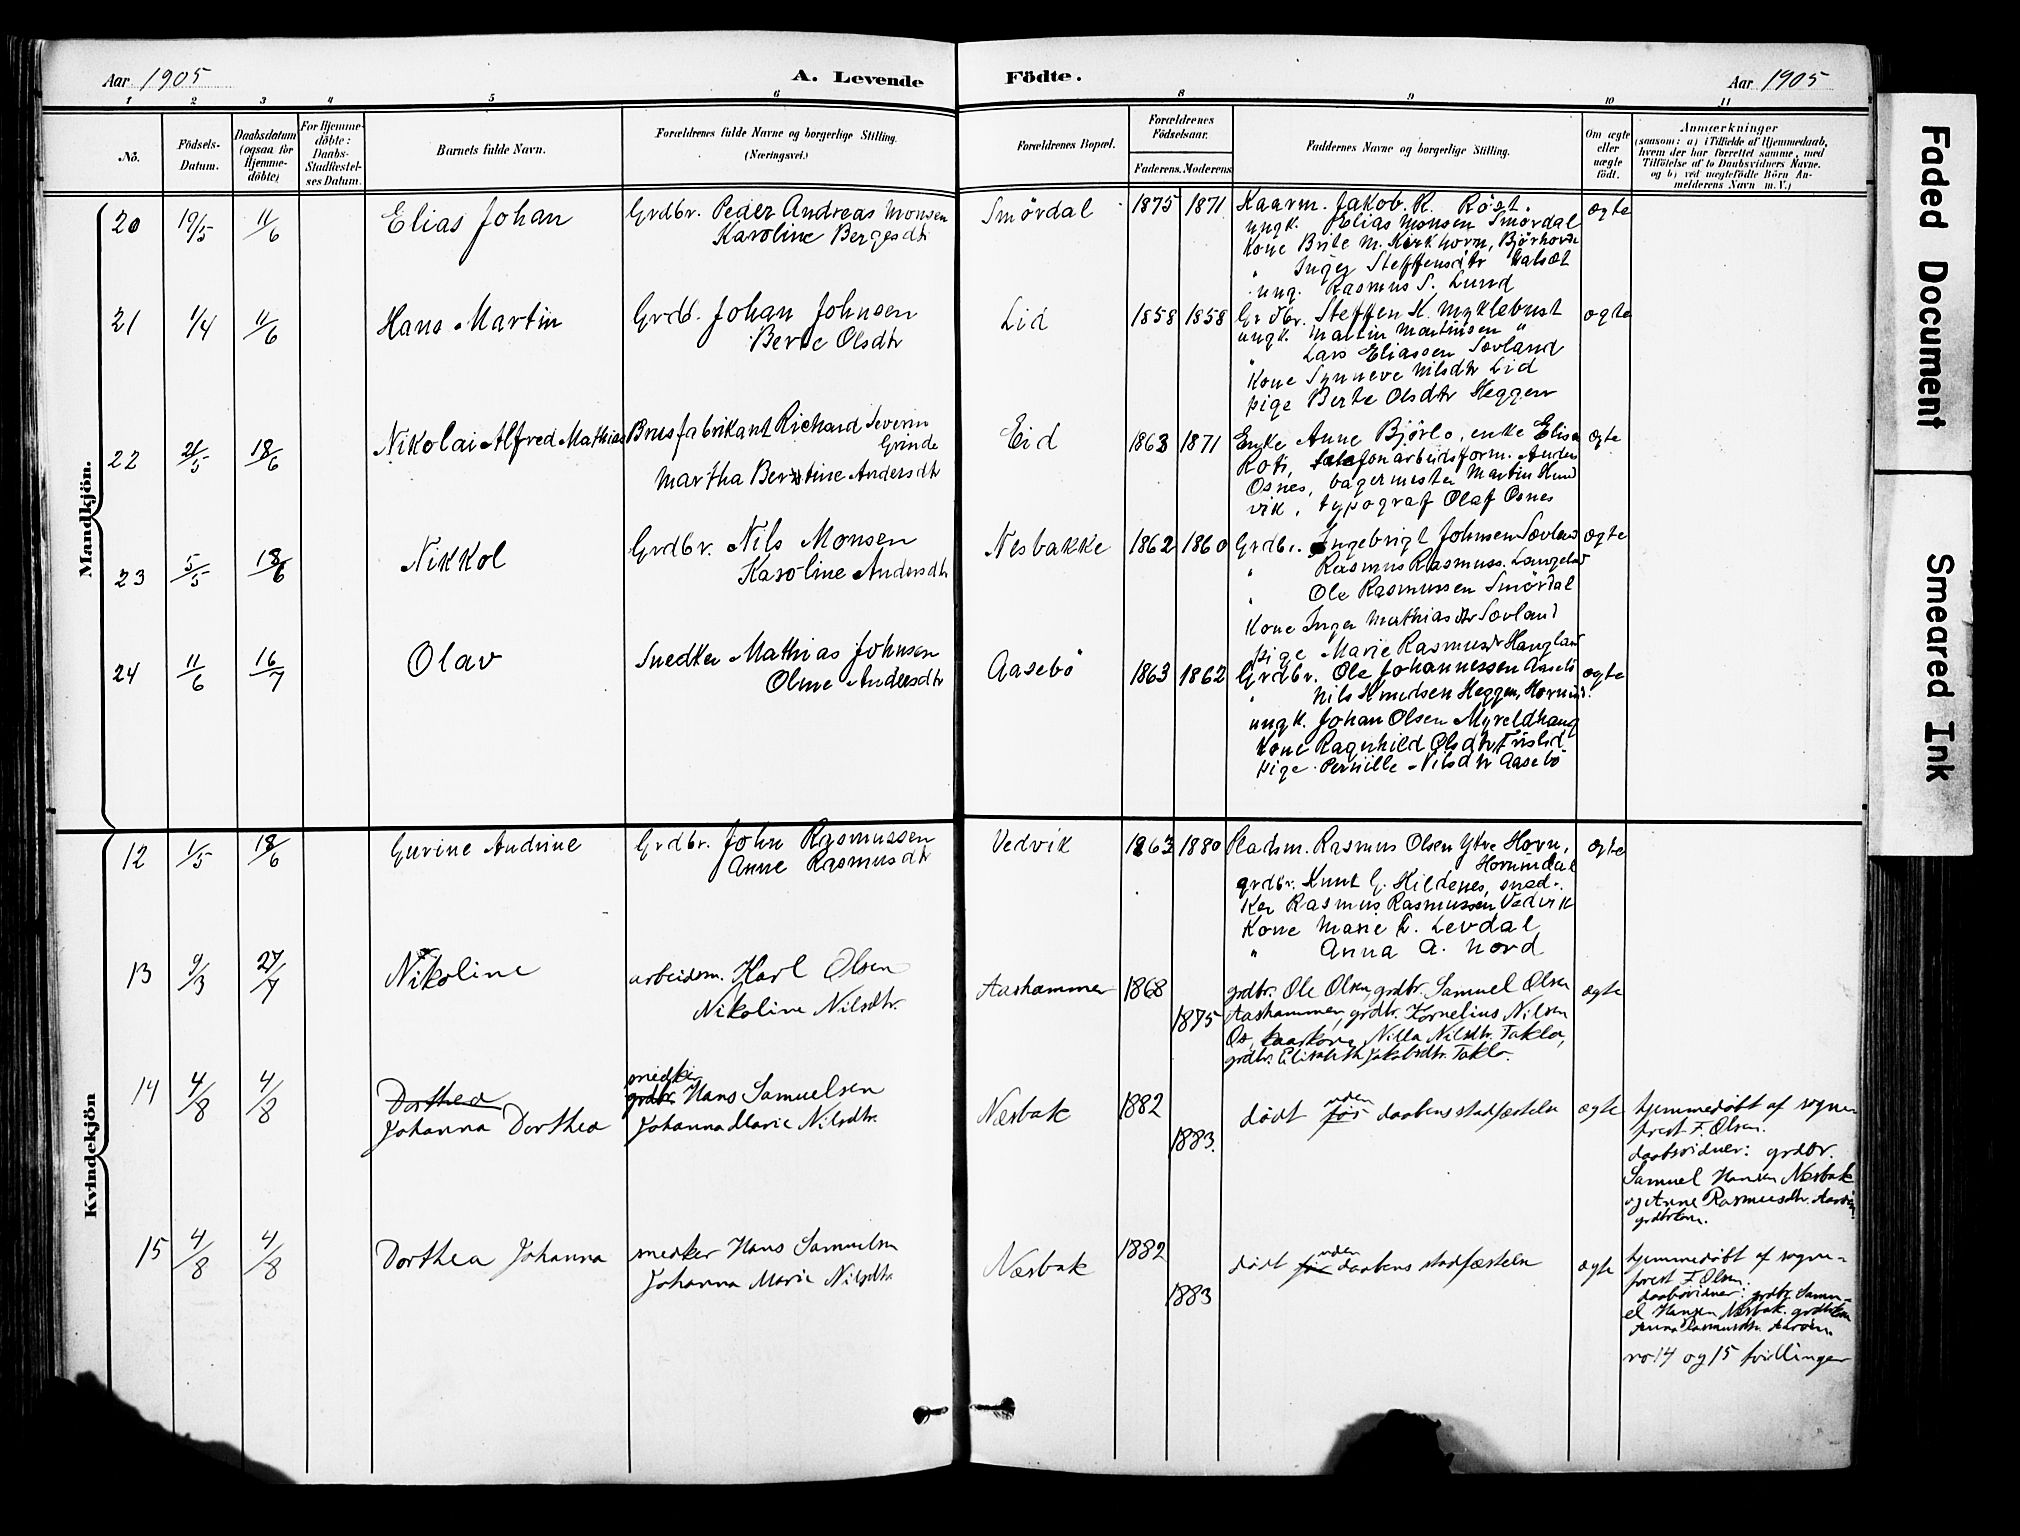 Aar 1905
A. Levende
Födte.
Aar 1905
1 2 3 4 5 6 8 9 10 11
No.
Födsels-Datum.
Daabsdatum (ogsaa for Hjemme-döbte)
For Hjemme-döbte: Daabs-Stadfæstel-ses Datum.
Barnets fulde Navn.
Forældrenes fulde Navne og borgerlige Stilling.
(Næringsvei.)
Forældrenes Bopæl.
Forældrenes Födselsaar.
Faderens. Moderens.
Faddernes Navne og borgerlige Stilling.
Om ægte eller uægte födt.
Anmærkninger
(saasom: a) i Tilfælde af Hjemmedaab,
hvem der har forrettet samme, med
Tilföielse af to Daabsvidners Navne.
og b) ved uægtefödte Börn An-
melderens Navn m. V.)
Mandkjön.
20 19/5 11/6 Elias Johan
Grdbr. Peder Andreas Monsen
Karoline Bergesdtr
Smördal 1875 1871
Kaarm. Jakob K. Röst.
ungk. Elias Monsen Smördal
Kone Brite M. Kirkhorn, Bjørhovde
" Inger Steffensdtr
ung. Rasmus S. Lund
ægte
21 1/4 11/6 Hans Martin
Grdb. Johan Johnsen
Berte Olsdtr
Lid 1858 1858
Grdbr. Steffen K. Myklebust
ungk. Martin Martinsen "
" Lars Eliassen Sævland
Kone Synneve Nilsdtr Lid
pige Berte Olsdtr Heggen
ægte
22 21/5 18/6 Nikolai Alfred Mathias
Brusfabrikant Richard Severin
Grinde
Martha Berntine Andersdtr
Eid 1863 1871
Enke Anne Bjørlo, enke Elisa
Roti, telefonarbeidsform. Anders
Osnes, bagermester Martin Hund
vik, typograf Olaf Osnes
ægte
23 5/5 18/6 Nikkol
Grdbr. Nils Monsen
Karoline Andersdtr
Nesbakke 1862 1860
Grdbr. Ingebrigt Johnsen Sævland
" Rasmus Rasmuss. Langeland
" Ole Rasmussen Smördal
Kone Inger Mathiasdtr Sævland
pige Marie Rasmusdtr Haugland
ægte
24 11/6 16/7 Olav
Snedker Mathias Johnsen
Oline Andersdtr
Aasebö 1863 1862
Grdbr. Ole Johannessen Aasebö
" Nils Knudsen Heggen, Hornind.
ungk. Johan Olsen Myreldhaug
Kone Ragnhild Olsdtr
pige Pernille Nilsdtr Aasebö
ægte
Kvindekjön
12 1/5 18/6 Gurine Andrine
Grdbr. John Rasmussen
Anne Rasmusdtr
Vedvik 1863 1880
Pladsm. Rasmus Olsen Ytre Horn,
Hornindal
grdbr. Knut G. Hildenes, sned-
ker Rasmus Rasmussen Vedvik
Kone Marie L. Levdal
" Anna A. Nord
ægte
13 9/3 27/7 Nikoline
arbeidsm. Karl Olsen
Nikoline Nilsdtr.
Aashammer 1868 1875
grdbr. Ole Olsen, grdbr. Samuel Olsen
Aashammer, grdbr. Kornelius Nilsen
Os, kaarkone Nilla Nilsdtr. Taklo,
grdbr. Elisabeth Jakobsdtr. Taklo.
ægte
14 4/8 4/8 Dorthea
Johanna Dorthea
snedker
grdbr. Hans Samuelsen
Johanna Marie Nilsdtr.
Næsbak 1882 1883.
dødt før uden daabens stadfæstelse
ægte
hjemmedøbt af sogne-
prest F. Olsen.
daabsvidner: grdbr.
Samuel Hansen Næsbak
og Anne Rasmusdtr. Aarøen
grdbrkone.
15 4/8 4/8 Dorthea Johanna
snedker Hans Samuelsen
Johanna Marie Nilsdtr
Næsbak 1882 1883
dødt før uden daabens stadfæstelse
ægte
hjemmedøbt af sogne-
prest F. Olsen.
daabsvidner: grdbr. Samu-
el Hansen Næsbak. grdbrkone
Anna Rasmusdtr. Aarøen.
no 14 og 15 tvillinger
Faded Document
Smeared Ink